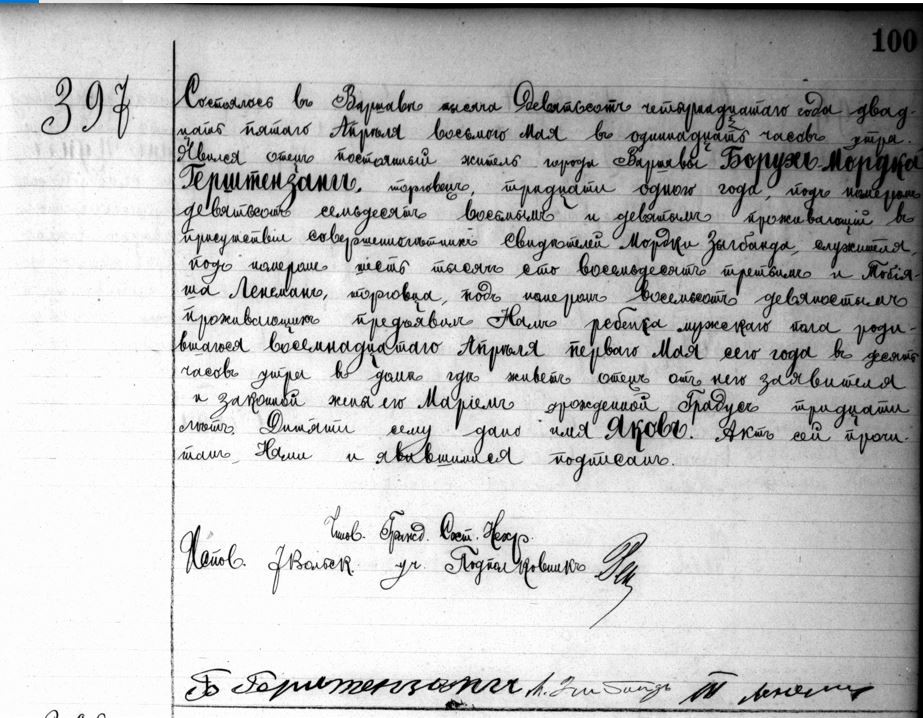 100
397
Состоялось въ Варшавѣ тысяча Девятьсотъ четырнадцатаго года двад-
цать пятаго Апрѣля восьмого Мая въ одиннадцать часовъ утра.
Явился отецъ постоянный житель города Варшавы Борухъ Мордка
Герштензангъ, торговецъ, тридцати одного года, подъ номеромъ
девятьсотъ семьдесятъ восьмымъ и девятымъ проживающій въ
присутствіи совершеннолѣтнихъ свидѣтелей Мордки Зыгбанда, служителя,
подъ номеромъ шесть тысячъ сто восемьдесятъ третьимъ и Тобія-
ша Ленеманъ, торговца, подъ номеромъ восемьсотъ девяностымъ
проживающихъ предъявилъ Намъ ребенка мужескаго пола роди-
вшагося восемнадцатаго Апрѣля перваго Мая сего года въ десять
часовъ утра въ домѣ гдѣ живетъ отецъ отъ него заявителя
и законной жены его Маріемъ урожденной Градусъ тридцати
лѣтъ. Дитяти сему дано имя Яковъ. Актъ сей прочи-
танъ, Нами и явившимися подписанъ.
Чинов. Гражд. Сост. Нехр.
Испов. уч. Подполковникъ
Б Герштензангъ М. Зигбандъ Т